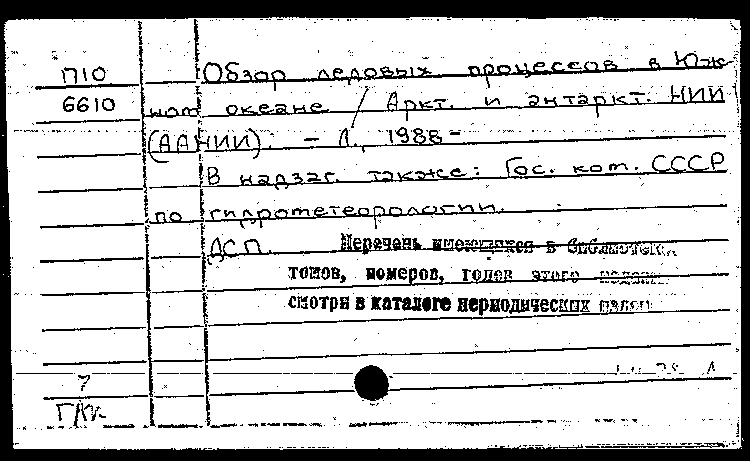 П10 Обзор ледовых процессов в Юж-
6610 ном океане / Аркт. и антаркт. НИИ
(ААНИИ). – Л., 1986 –
В надзаг. также: Гос. ком. СССР
по гидрометеорологии.
ДСП. Перечень имеющихся в библиотеке
томов, номеров, годов этого издания
смотри в каталоге периодических издан
7
ГАК